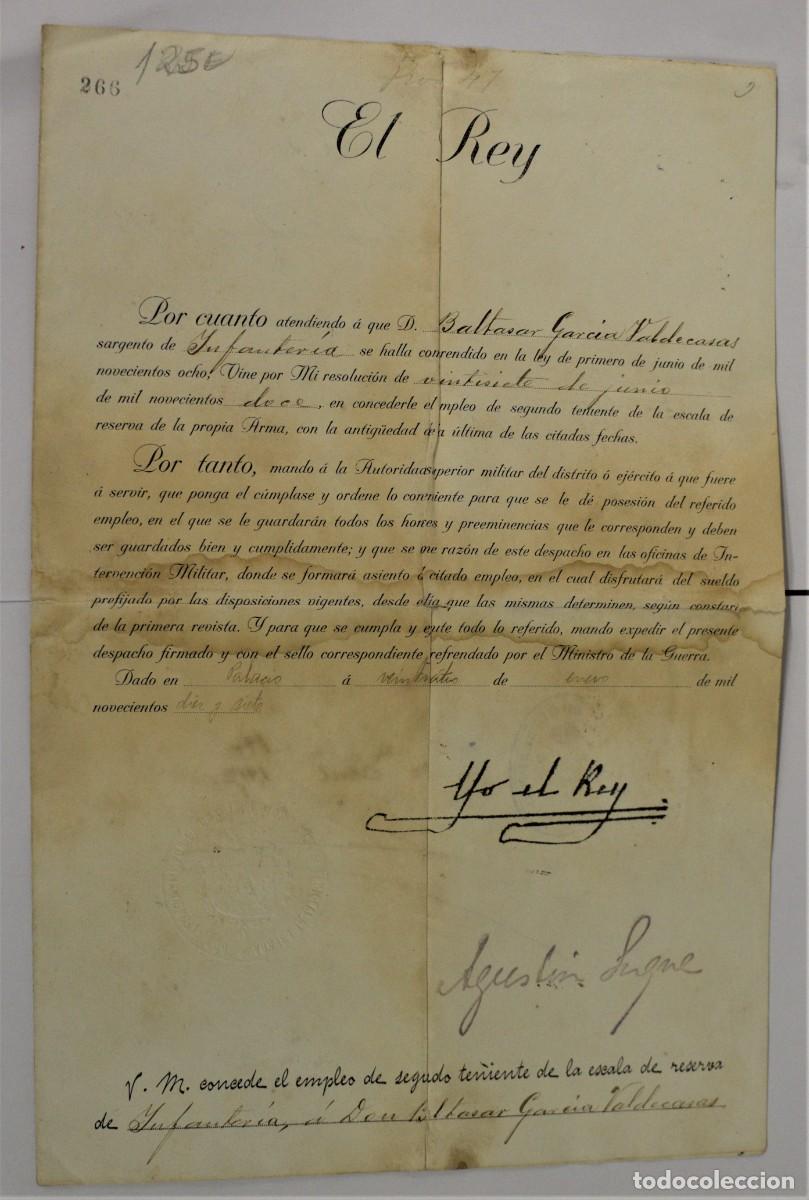 266
El Rey
Por cuanto atendiendo á que D. Baltasar Garcia Valdecasas
sargento de Infantería se halla comprendido en la ley de primero de junio de mil
novecientos ocho; Vine por Mi resolución de veintisiete de junio
de mil novecientos doce, en concederle el empleo de segundo teniente de la escala de
reserva de la propia Arma, con la antigüedad de la última de las citadas fechas.
Por tanto, mando á la Autoridad superior militar del distrito ó ejército á que fuere
á servir, que ponga el cúmplase y ordene lo conveniente para que se le dé posesión del referido
empleo, en el que se le guardarán todos los honores y preeminencias que le corresponden y deben
ser guardados bien y cumplidamente; y que se tome razón de este despacho en las oficinas de In-
tervención Militar, donde se formará asiento del citado empleo, en el cual disfrutará del sueldo
prefijado por las disposiciones vigentes, desde el día que las mismas determinen, según constará
de la primera revista. Y para que se cumpla y ejecute todo lo referido, mando expedir el presente
despacho firmado y con el sello correspondiente refrendado por el Ministro de la Guerra.
Dado en Palacio á de enero de mil
novecientos diez y siete
Yo el Rey
Agustín Luque
V. M. concede el empleo de segudo teniente de la escala de reserva
de Infantería, á Don Baltasar Garcia Valdecasas
todocoleccion
todocoleccion.net